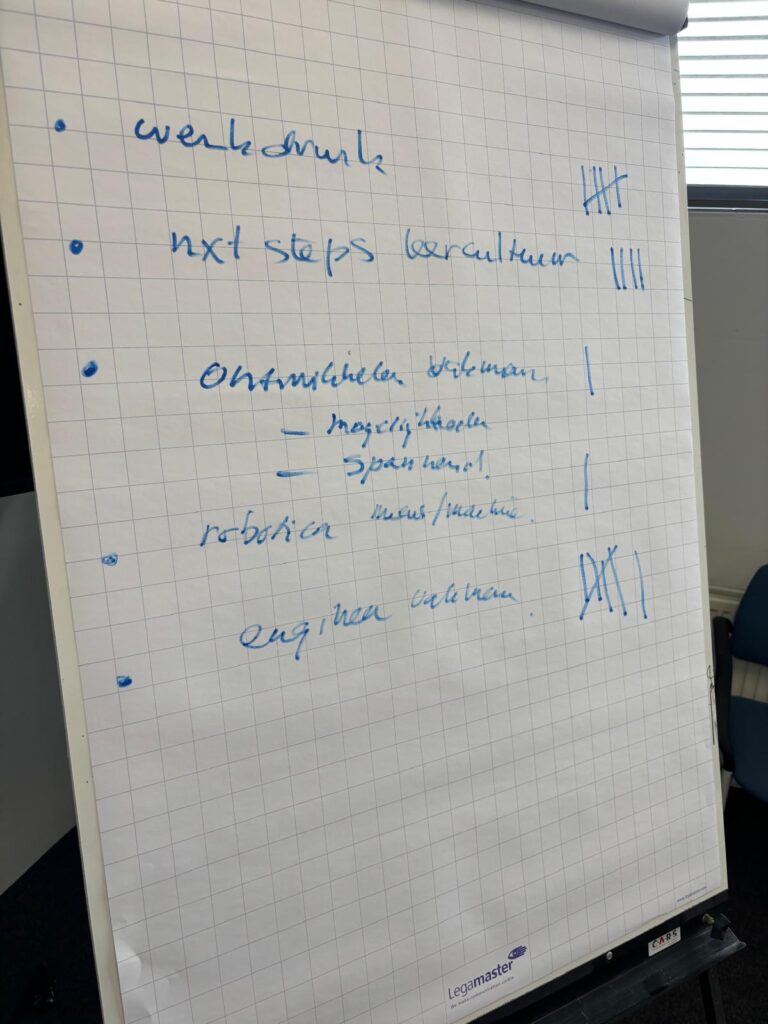 • werkdruk
• nxt steps leercultuur
• Ontwikkelen vakman
– mogelijkheden
– spannend.
• robotica mens/machine.
• engineer vakman.
Legamaster
CARS